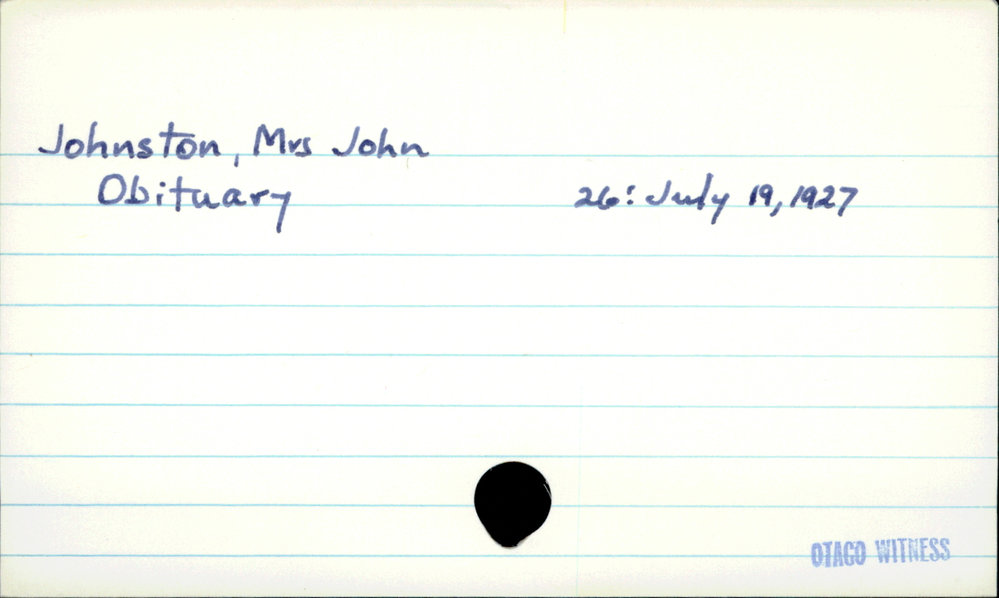 Johnston, Mrs John
Obituary 26: July 19, 1927
OTAGO WITNESS